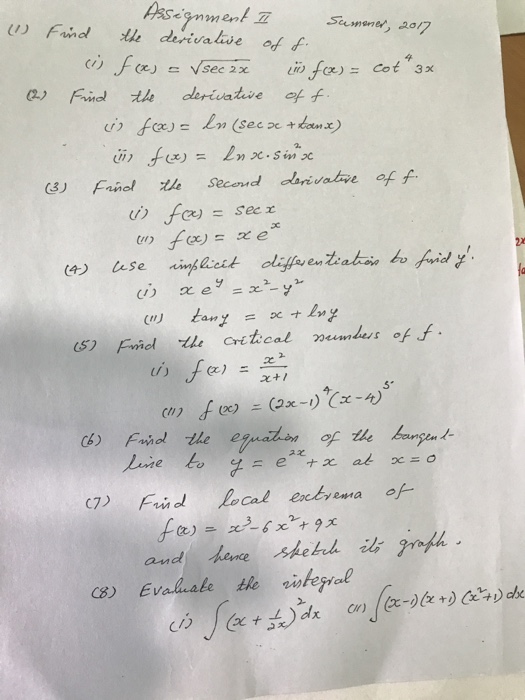 Assignment II
Summer, 2017
(1) Find the derivative of f.
(i) f(x) = √sec 2x (ii) f(x) = cot⁴ 3x
(2) Find the derivative of f.
(i) f(x) = ln (sec x + tan x)
(ii) f(x) = ln x · sin² x
(3) Find the second derivative of f.
(i) f(x) = sec x
(ii) f(x) = x eˣ
(4) Use implicit differentiation to find y'.
(i) x eʸ = x² - y²
(ii) tan y = x + ln y
(5) Find the critical numbers of f.
(i) f(x) = x² / (x+1)
(ii) f(x) = (2x-1)⁴ (x-4)⁵
(6) Find the equation of the tangent
line to y = e²ˣ + x at x = 0
(7) Find local extrema of
f(x) = x³ - 6x² + 9x
and hence sketch its graph.
(8) Evaluate the integral
(i) ∫(x + 1/2x)² dx (ii) ∫(x-1)(x+1)(x²+1) dx